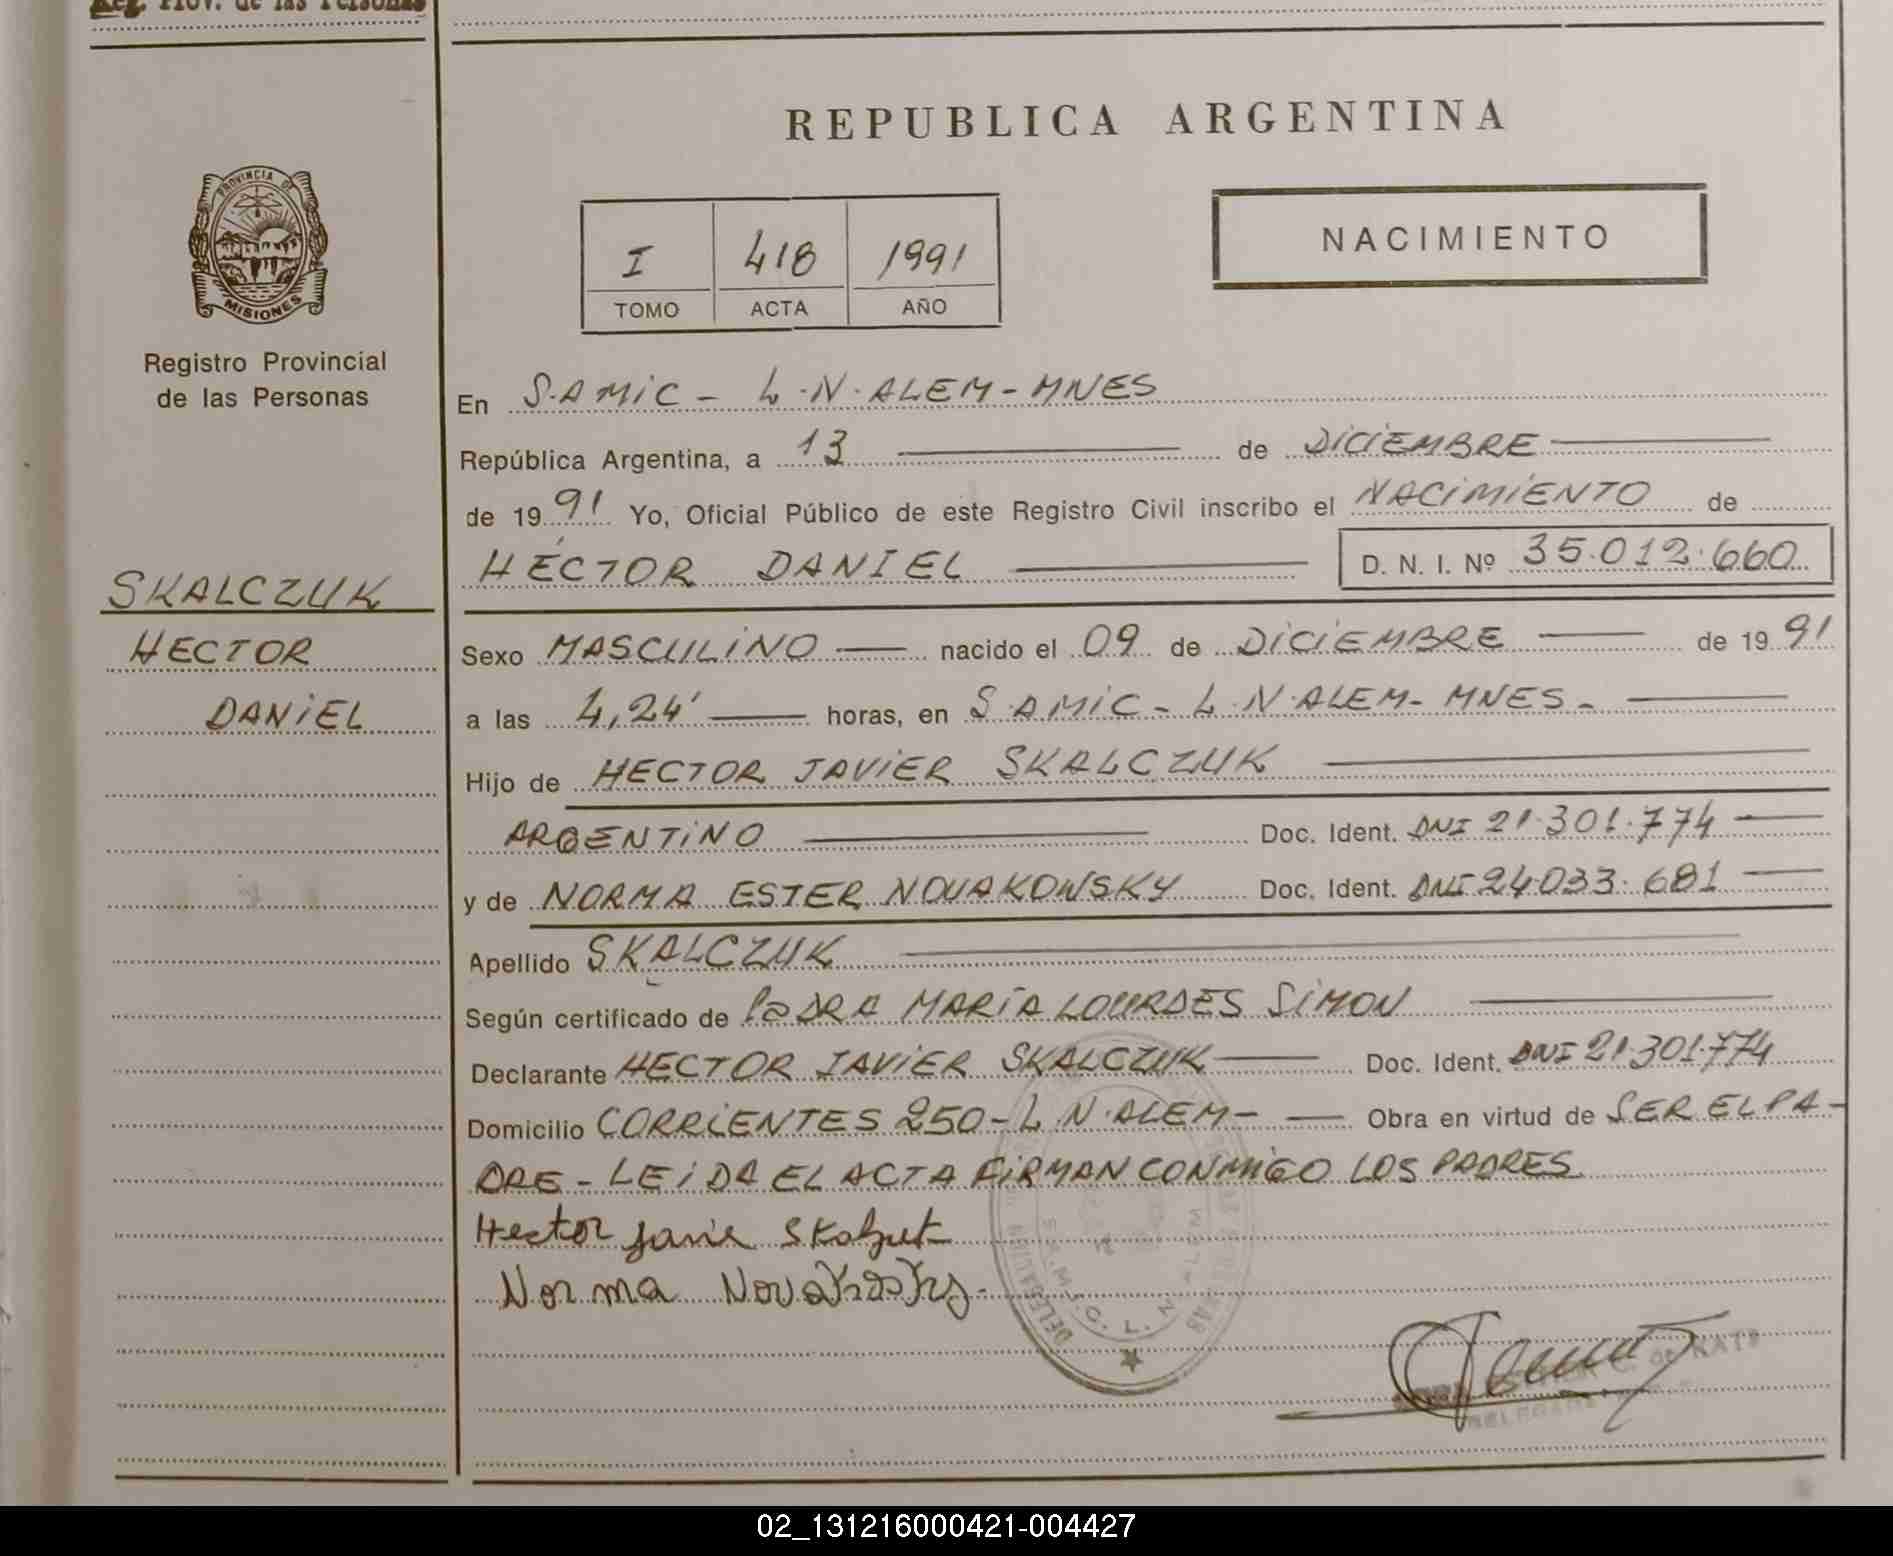 Reg. Prov. de las Personas
REPUBLICA ARGENTINA
PROVINCIA DE
MISIONES
Registro Provincial
de las Personas
I 418 1991
TOMO ACTA AÑO
NACIMIENTO
En S.AMIC - L.N.ALEM-MNES
República Argentina, a 13 de DICIEMBRE
de 1991 Yo, Oficial Público de este Registro Civil inscribo el NACIMIENTO de
HÉCTOR DANIEL D. N. I. Nº 35.012.660
SKALCZUK
HECTOR
DANIEL
Sexo MASCULINO nacido el 09 de DICIEMBRE de 1991
a las 4,24' horas, en S AMIC - L N.ALEM- MNES.-
Hijo de HECTOR JAVIER SKALCZUK
ARGENTINO Doc. Ident. DNI 21.301.774
y de NORMA ESTER NOVAKOWSKY Doc. Ident. DNI 24.033.681
Apellido SKALCZUK
Según certificado de DRA MARÍA LOURDES SIMON
Declarante HECTOR JAVIER SKALCZUK Doc. Ident. DNI 21.301.774
Domicilio CORRIENTES 250-L N.ALEM- Obra en virtud de SER EL PA-
DRE - LEIDA EL ACTA FIRMAN CONMIGO LOS PADRES
Hector Javier
Norma
S.A.M.I.C. L. N. ALEM
02_131216000421-004427